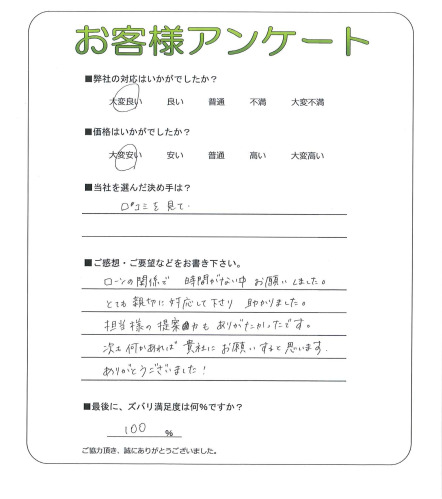 お客様アンケート
■弊社の対応はいかがでしたか？
大変良い 良い 普通 不満 大変不満
■価格はいかがでしたか？
大変安い 安い 普通 高い 大変高い
■当社を選んだ決め手は？
口コミを見て.
■ご感想・ご要望などをお書き下さい。
ローンの関係で 時間がない中 お願いしました。
とても親切に対応して下さり 助かりました。
担当様の提案力もありがたかったです。
次も何かあれば 貴社にお願いすると思います.
ありがとうございました！
■最後に、ズバリ満足度は何％ですか？
100 %
ご協力頂き、誠にありがとうございました。